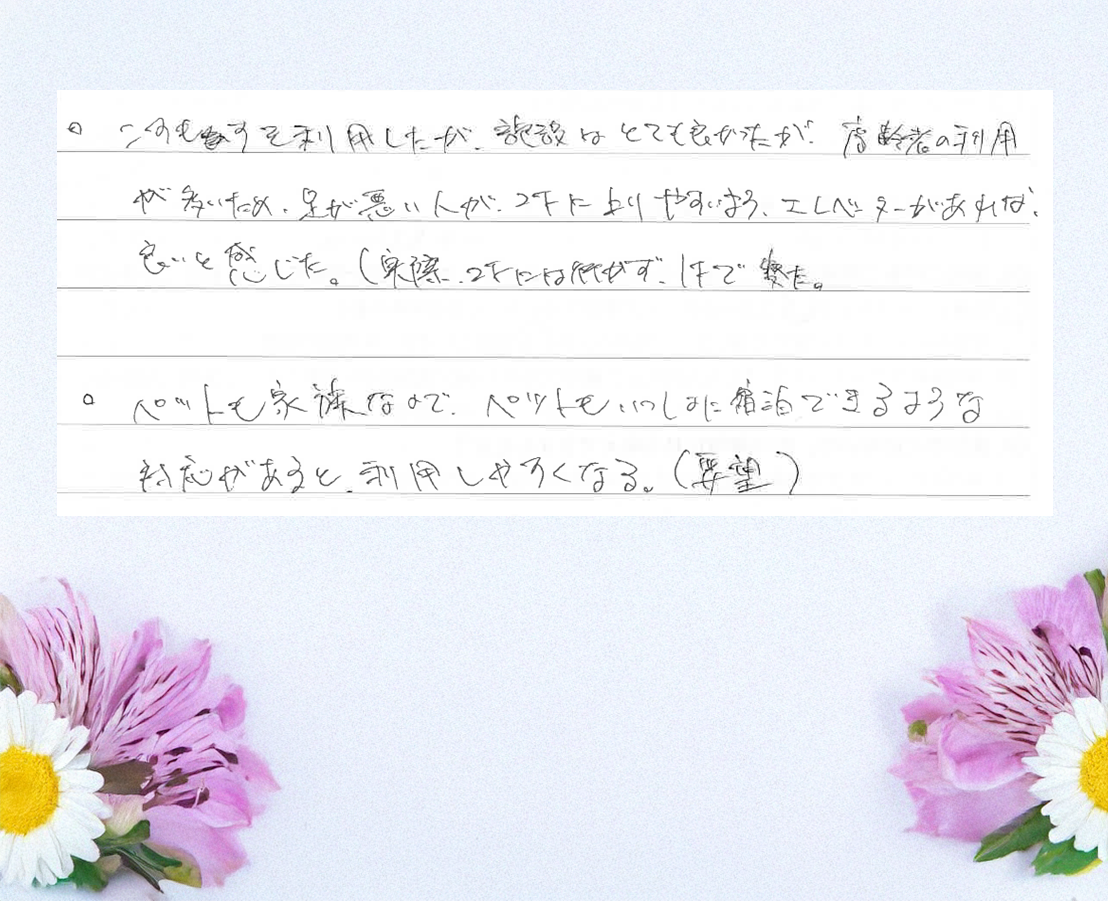 ○ を利用したが、施設はとても良かったが、高齢者の利用
が多いため、足が悪い人が、2Fに上りやすいよう、エレベーターがあれば、
良いと感じた。(実際、2Fには行かず、1Fで寝た。
○ ペットも家族なので、ペットもいっしょに宿泊できるような
対応があると、利用しやすくなる。(要望)